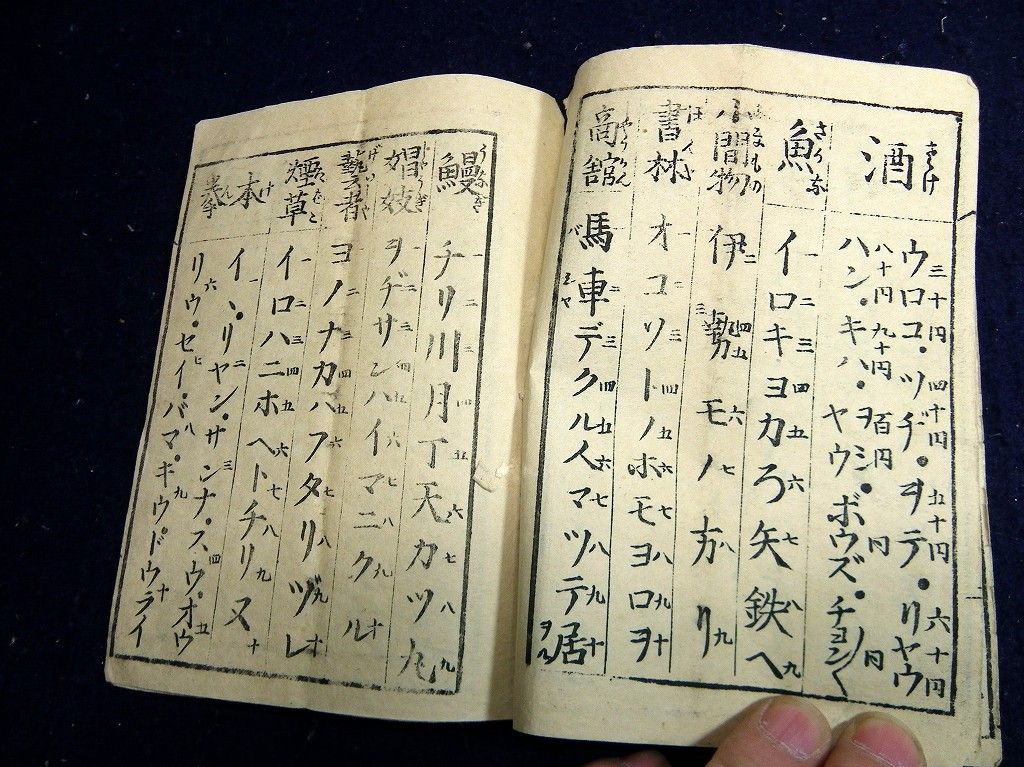 酒 さけ
三十円 四十円 五十円 六十円
ウロコ・ツヂ・ヲテ・リヤウ
八十円 九十円 百円 円 円
ハン・キハ・ヤウ・ボウズ・チョン〱
魚 さかな
イロキヨカろ矢鉄へ
二三四五六七八九
小間物 こまもの
伊勢モノ方リ
書林 ほんや
オコソトノホモヨロヲ
一二三四五六七八九十
馬車デクル人マツテ居
バシヤ ヲル
二三四五六七八九十
鰻 うなぎ
チリ川月丁天カツ九
一二三四五六七八九
娼妓 しやうぎ
ヲヂサンハイマニクル
一二三四五六七八九十
藝者 げいしや
ヨノナカハフタリヅレ
一二三四五六七八九十
煙草 たばこ
イロハニホヘトチリヌ
一二三四五六七八九十
本 けん
イ・リヤン・サンナ・スウ・オウ
一 二 三 四 五
リウ・セイ・バマ・キウ・ドウライ
六 七 八 九 十